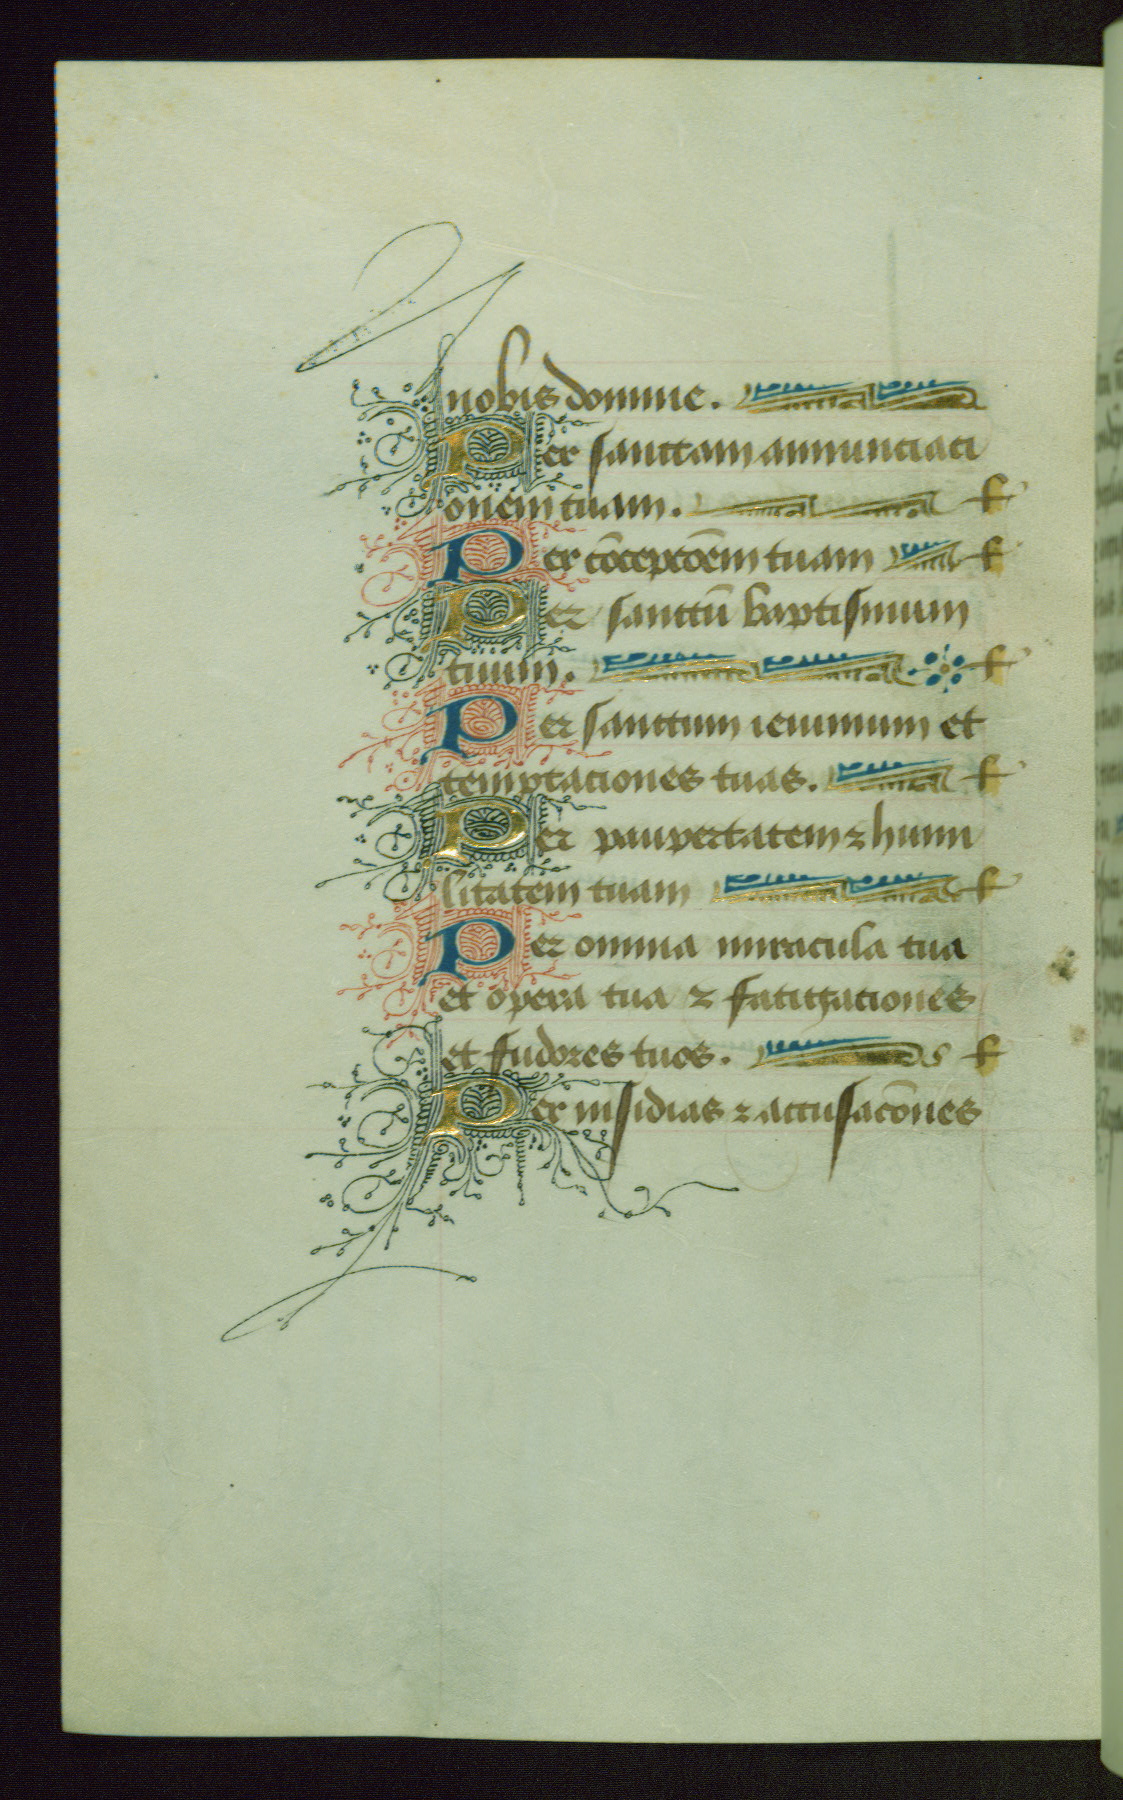 nobis domine.
Per sanctam annunciaci
onem tuam. k
Per cōcepcōem tuam k
Per sanctū baptismum
tuum. k
Per sanctum ieiunium et
temptaciones tuas. k
Per paupertatem ⁊ humi
litatem tuam k
Per omnia miracula tua
et opera tua ⁊ fatigaciones
et sudores tuos. k
Per insidias ⁊ accusacōnes